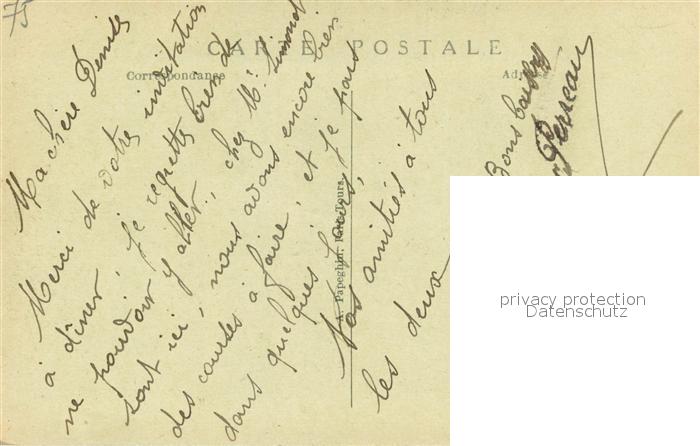 75
CARTE POSTALE
Correspondance
Adresse
Ma chère Denise
Merci de votre invitation
à dîner, je regrette bien de
ne pouvoir y aller, chez Mr Simonet
sont ici, nous avons encore bien
des courses à faire, et je pars
dans quelques jours,
Nos amitiés à tous
les deux
Bons baisers
A. Papeghin, Paris-Tours.
privacy protection
Datenschutz